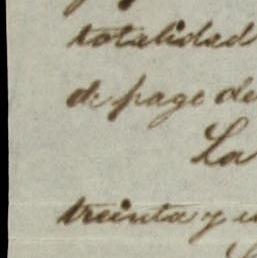 totalidad
de pago de
La
treinta y u